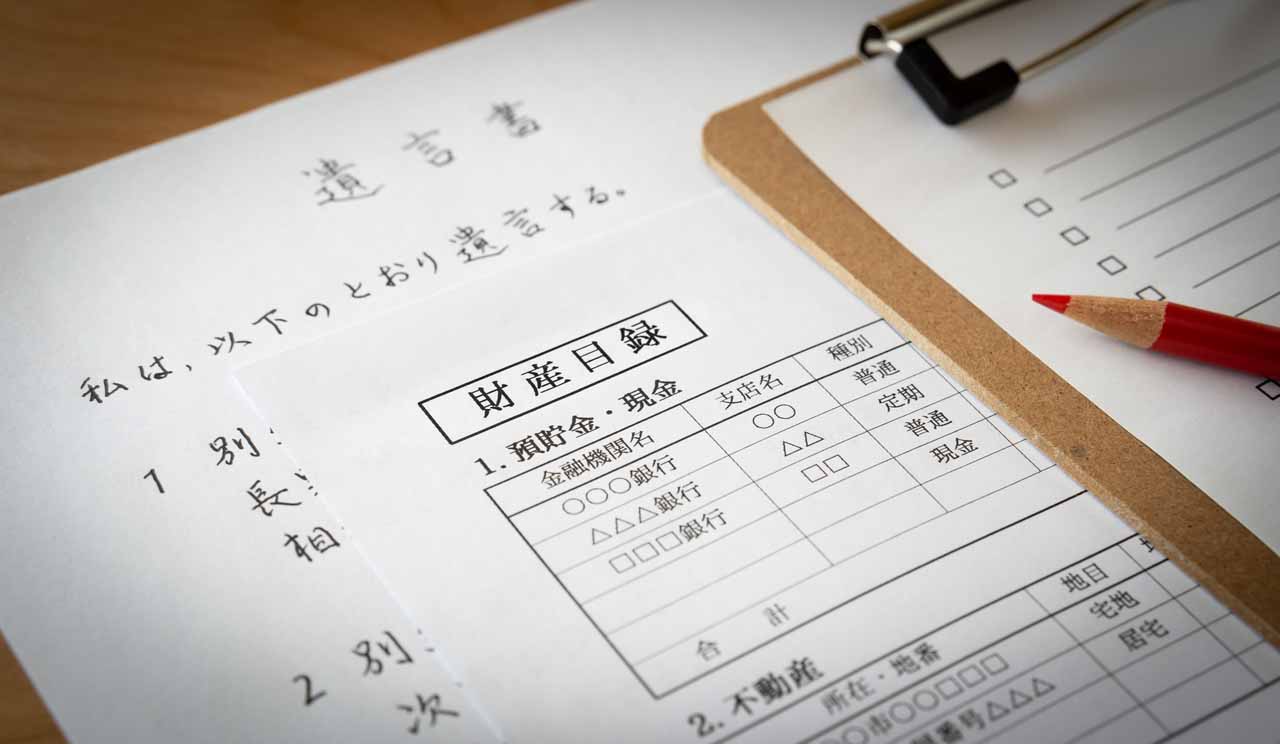 遺言書
私は，以下のとおり遺言する。
1 別
長
相
2 別
次
財産目録
1. 預貯金・現金
金融機関名 支店名 種別
○○○銀行 ○○ 普通
△△△銀行 △△ 定期
□□□銀行 □□ 普通
現金
合計
2. 不動産
所在・地番 地目
○市○○□□□ 宅地
番号△△△ 居宅